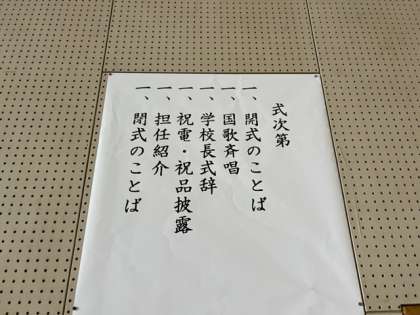 式次第
一、開式のことば
一、国歌斉唱
一、学校長式辞
一、祝電・祝品披露
一、担任紹介
一、閉式のことば